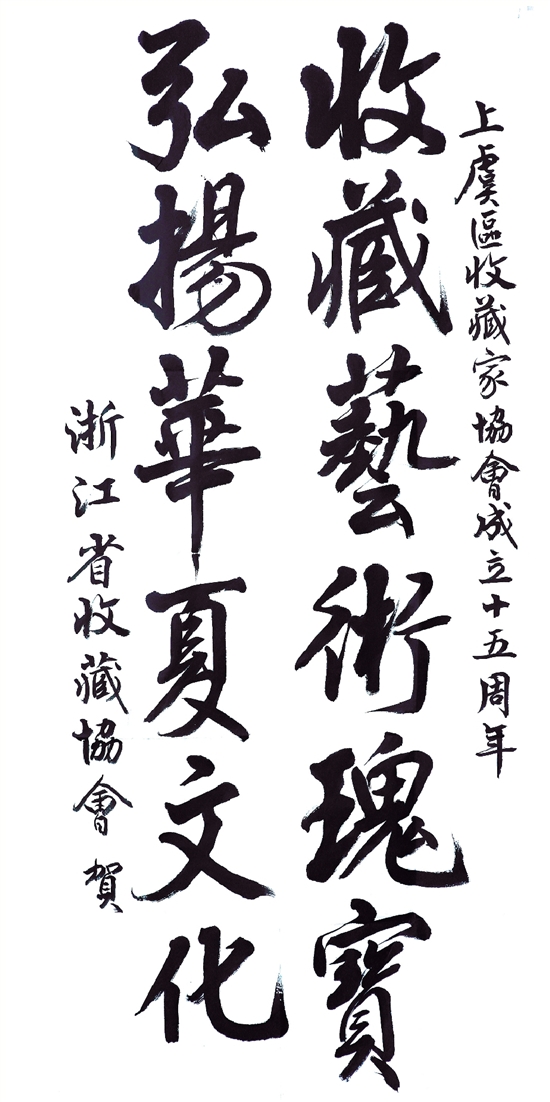 上虞區收藏家協會成立十五周年
收藏藝術瑰寶
弘揚華夏文化
浙江省收藏協會 賀